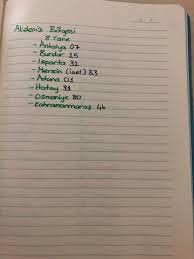 Akdeniz Bölgesi
8 Tane
- Antalya 07
- Burdur 15
- Isparta 32
- Mersin (içel) 33
- Adana 01
- Hatay 31
- Osmaniye 80
- Kahramanmaraş 46